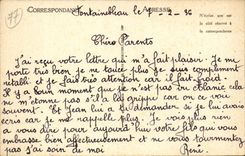 77
CORRESPONDANCE
ADRESSE
Fontainebleau le 7-2-36
N'écrire que sur
le côté réservé à
la correspondance
Chers Parents
J'ai reçu votre lettre qui m'a fait plaisir. Je me
porte très bien je ne tousse plus je suis complètement
rétabli et je fais très attention car il fait froid.
Il y a bon moment que je n'ai pas reçu de
ne m'étonne pas s'il a la grippe car on ne voit
que Jean lui a
car je me rappelle plus. Je vois plus rien
a vous dire pour aujourd'hui votre fils qui vous
embrasse bien affectueusement et ne vous tourmentez
pas j'ai soin de moi
René.